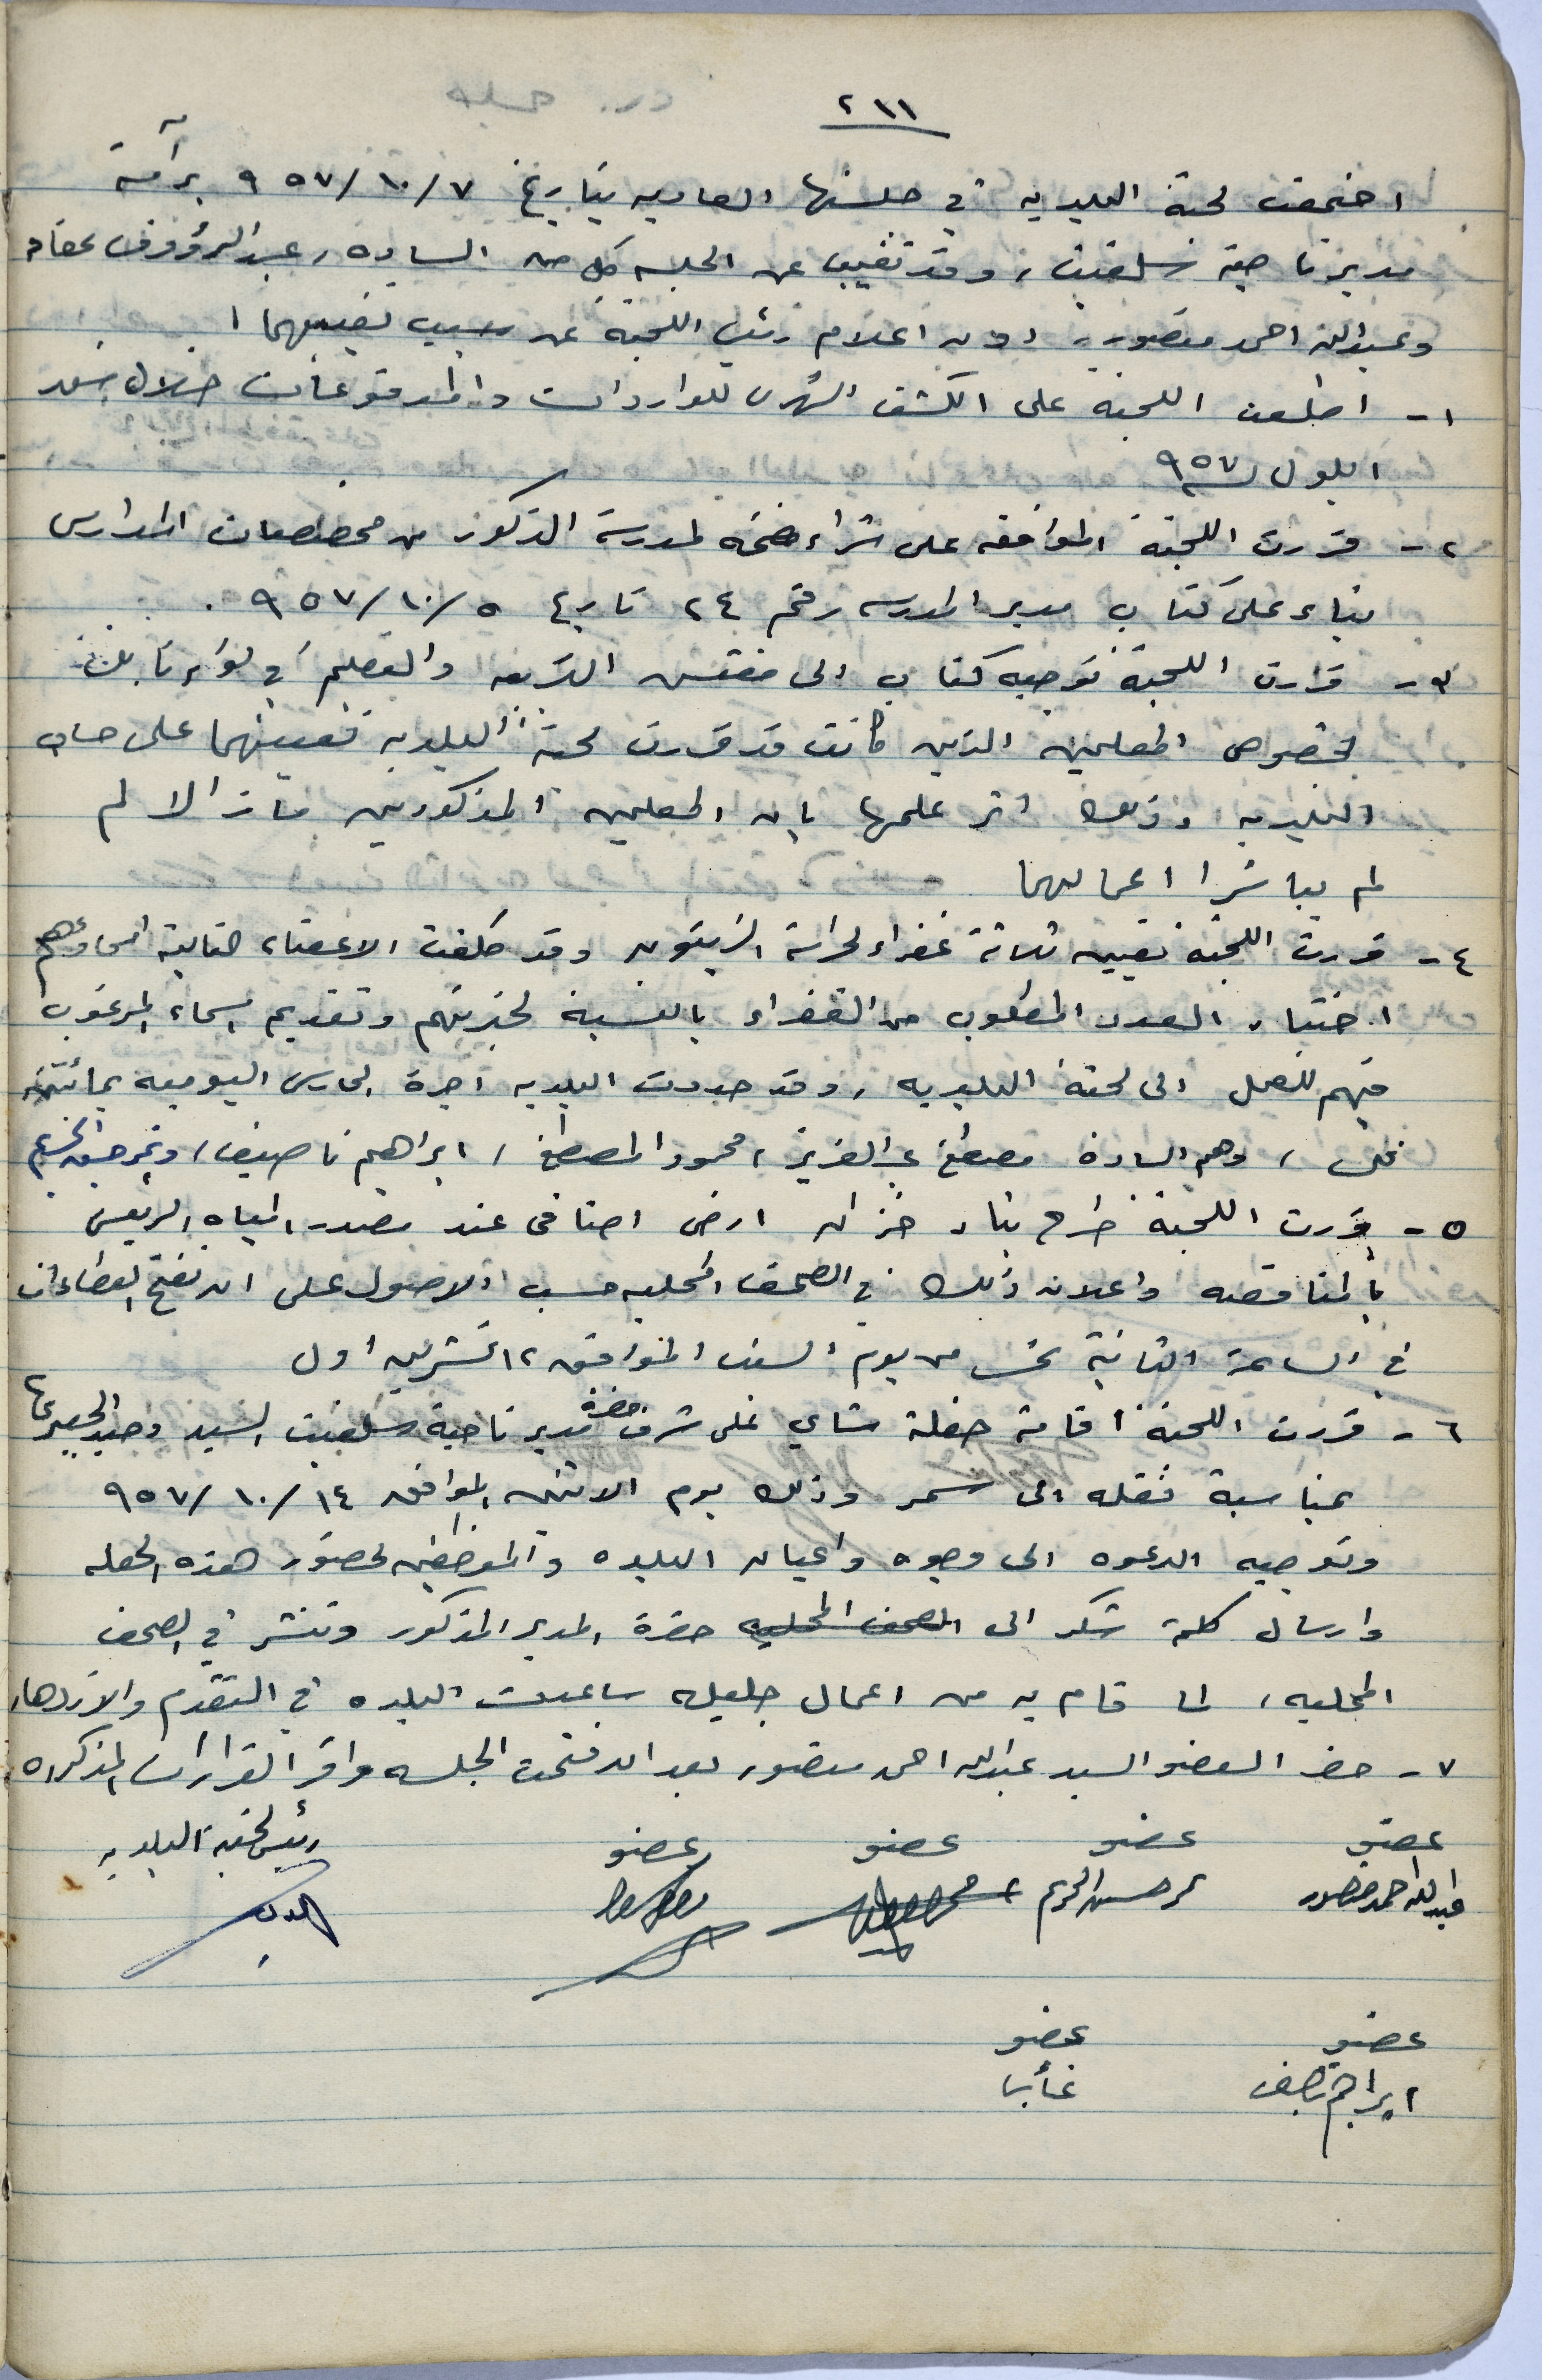 ٢١١
اجتمعت لجنة البلديه في جلستها العاديه بتاريخ ٧/١٠/٩٥٧ برآسة
مدير ناحية سلفيت، وقد تغيب عن الجلسه كل من الساده، عبد الرؤوف عفانه
وعبدالله احمد منصور، دون اعلام رئيس اللجنة عن سبب تغيبهما
١- اطلعت اللجنة على الكشف الشهري للواردات والمدفوعات خلال شهر
ايلول سنة ٩٥٧
٢- قررت اللجنة الموافقه على شراء مضخه لمدرسة الذكور من مخصصات المدارس
بناء على كتاب مدير المدرسه رقم ٢٤ تاريخ ٥/١٠/٩٥٧.
٣- قررت اللجنة توجيه كتاب الى مفتش التربيه والتعليم في لواء نابلس
بخصوص المعلمين الذين كانت قد قررت لجنة البلديه تعيينهما على حساب
البلديه وذلك اثر علمها بان المعلمين المذكورين ما زالا لم
لم يباشرا اعمالهما
٤- قررت اللجنة تعيين ثلاثة غفراء لحراسة الزيتون وقد كلفت الاعضاء التالية اسماؤهم
اختيار العدد المطلوب من الغفراء بالنسبة لخبرتهم وتقديم اسماء المرغوب
فيهم للعمل الى لجنة البلديه، وقد حددت البلديه اجرة الحارس اليوميه بمائتين
فلس، وهم الساده مصطفى عبد العزيز، محمود المصطفى، ابراهيم ناصيف، ونمر حسن الكريم
٥- قررت اللجنة طرح بناء خزان ارضي اضافي عند مصدر المياه الرئيسي
بالمناقصه واعلان ذلك في الصحف المحليه حسب الاصول على ان تفتح العطاءات
في الساعة الثانية عشر من يوم السبت الموافق ١٢ تشرين اول
٦- قررت اللجنة اقامة حفلة شاي على شرف حضرة مدير ناحية سلفيت السيد وحيد الجعبري
بمناسبة نقله الى سمر وذلك يوم الاثنين الموافق ١٤/١٠/٩٥٧
وتوجيه الدعوه الى وجوه واعيان البلده والموظفين لحضور هذه الحفله
وارسال كلمة شكر الى الصحف المحليه حضرة المدير المذكور وتنشر في الصحف
المحليه، لما قام به من اعمال جليله ساعدت البلده في التقدم والازدهار
٧- حضر العضو السيد عبدالله احمد منصور بعد ان فتحت الجلسه واقر القرارات المذكوره
عضو عضو عضو عضو رئيس لجنة البلديه
عبدالله احمد منصور نمر حسن الكريم
عضو عضو
ابراهيم ناصيف غائب